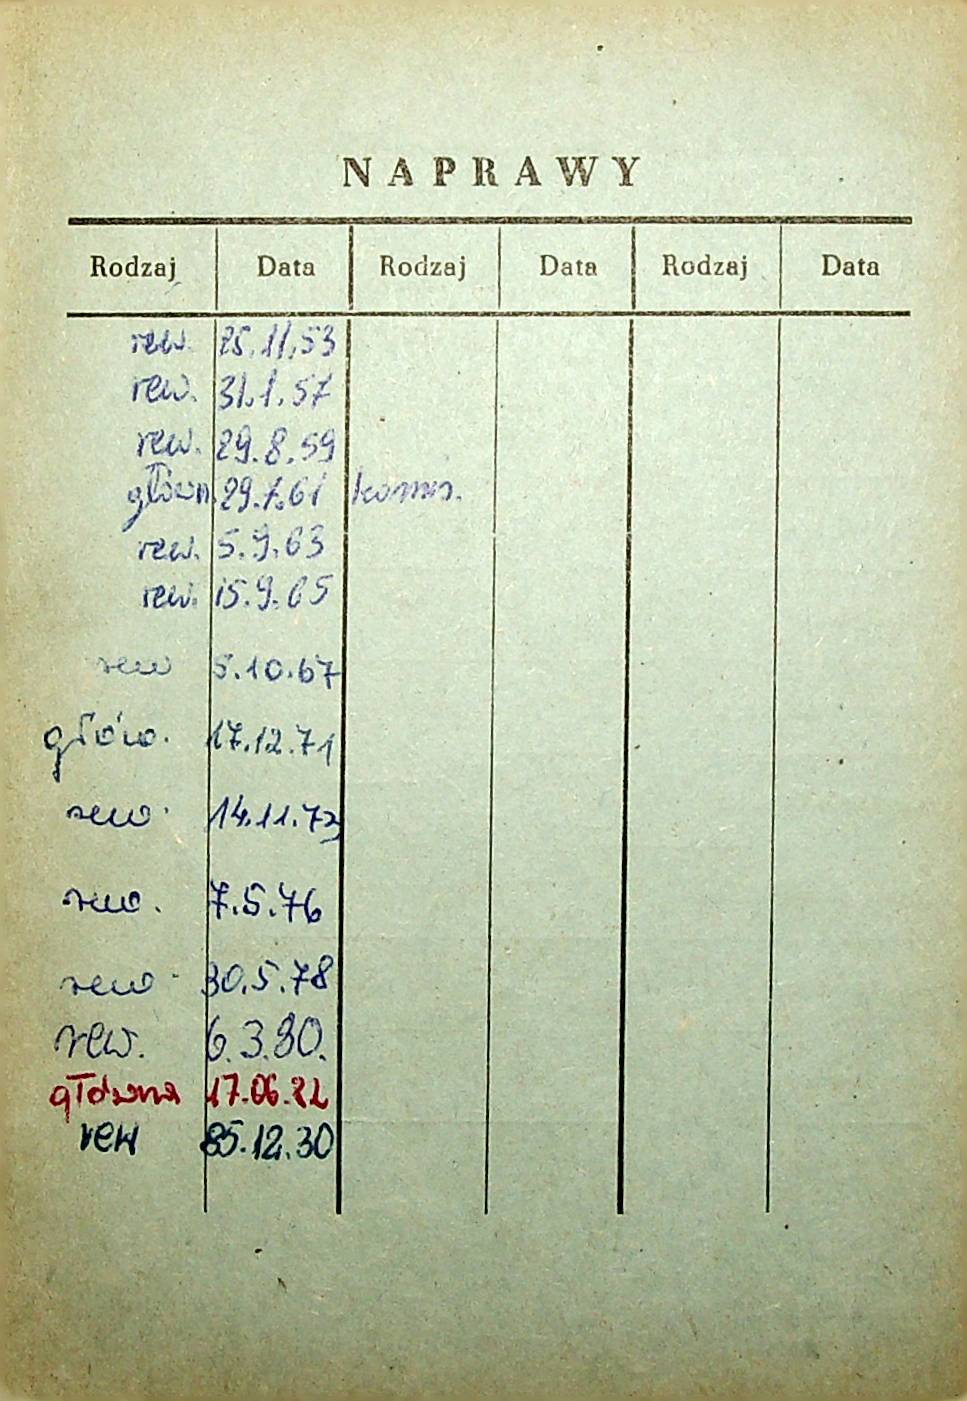 NAPRAWY
Rodzaj Data Rodzaj Data Rodzaj Data
rew. 25.11.53
rew. 31.1.57
rew. 29.8.59
główn. 29.7.61 komis.
rew. 5.9.63
rew. 15.9.65
rew 5.10.67
głów. 17.12.71
rew. 14.11.73
rew. 7.5.76
rew. 30.5.78
rew. 6.3.80.
główna 17.06.82
rew 85.12.30